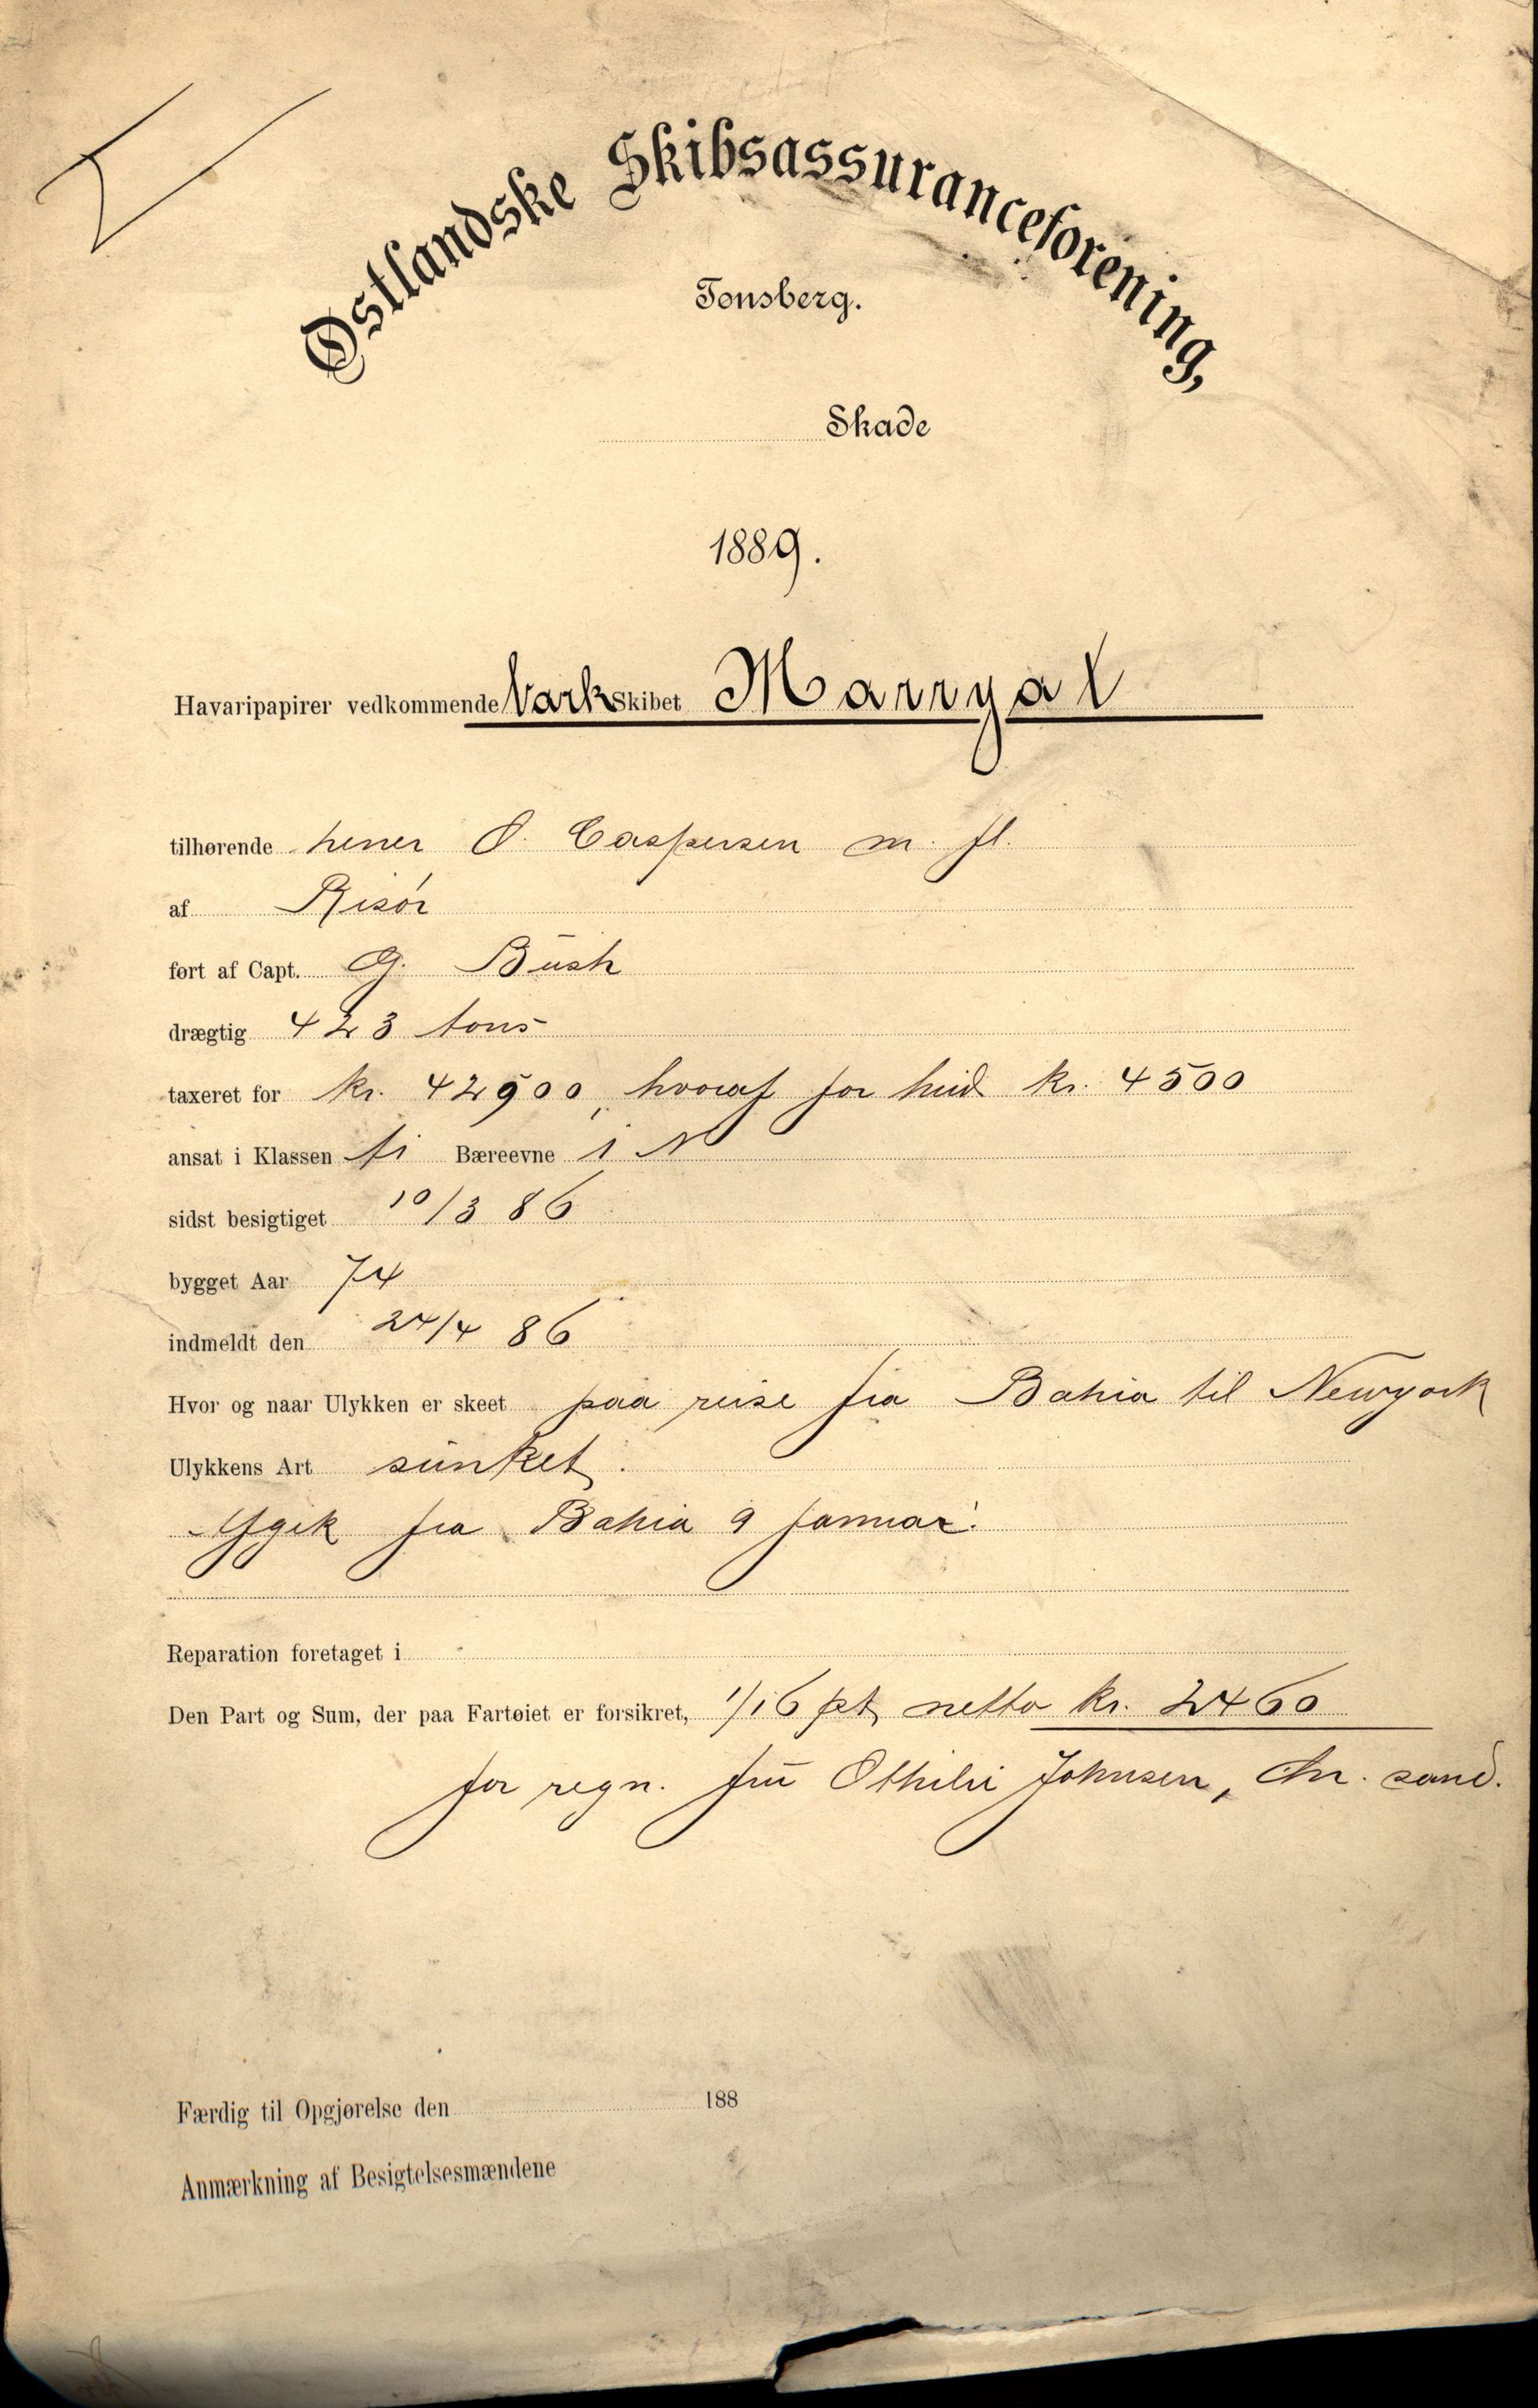 Østlandske Skibsassuranceforening,
Tønsberg.
Skade
1889.
Havaripapirer vedkommende Barkskibet Marryat
tilhørende herrer O. Caspersen m. fl.
af Risør
ført af Capt. G. Bush
drægtig 423 tons
taxeret for kr. 42900, hvoraf for hud kr. 4500
ansat i Klassen Bæreevne 1 N
sidst besigtiget 10/3 86
bygget Aar 74
indmeldt den 24/4 86
Hvor og naar Ulykken er skeet paa reise fra Bahia til Newyork
Ulykkens Art sunket.
Afgik fra Bahia 9 Januar.
Reparation foretaget i
Den Part og Sum, der paa Fartøiet er forsikret, 1/16 pt netto kr. 2460
for regn. fru Othilie Johnsen, Chr. sand.
Færdig til Opgjørelse den 188
Anmærkning af Besigtelsesmændene